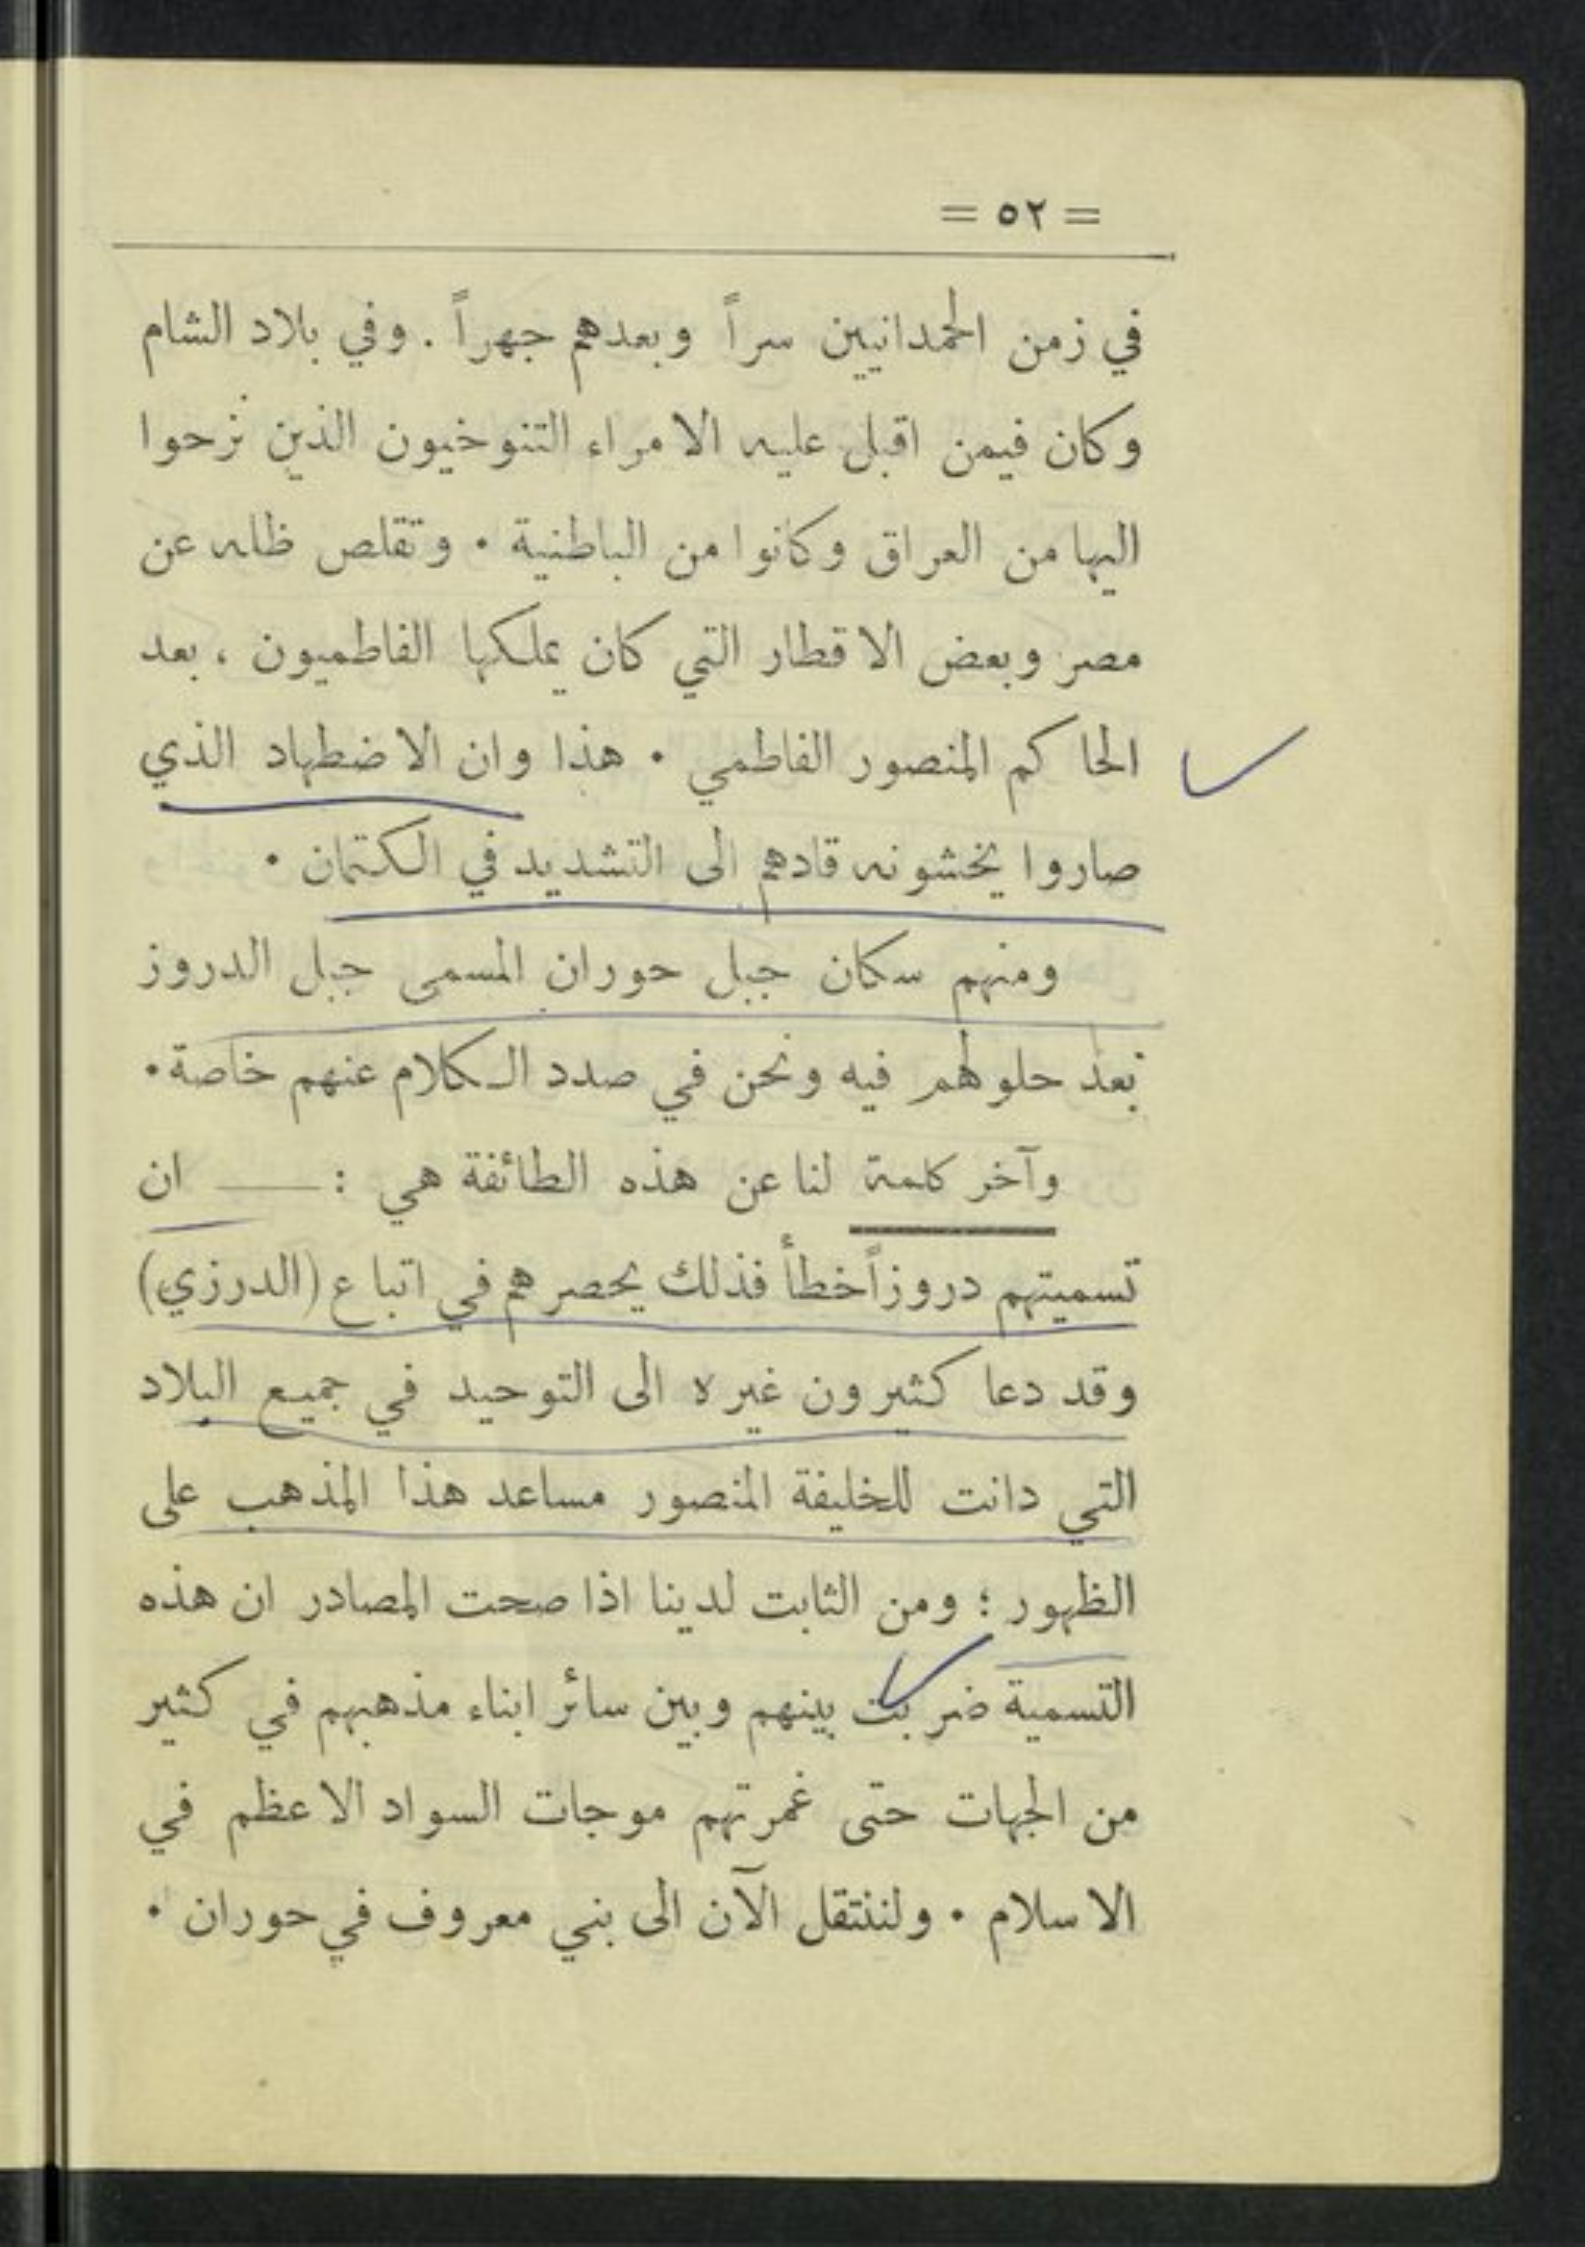 = ٥٢ =
في زمن الحمدانيين سراً وبعدهم جهراً . وفي بلاد الشام
وكان فيمن اقبل عليه الامراء التنوخيون الذين نزحوا
اليها من العراق وكانوا من الباطنية . وتقلص ظله عن
مصر وبعض الاقطار التي كان يملكها الفاطميون ، بعد
الحاكم المنصور الفاطمي . هذا وان الاضطهاد الذي
صاروا يخشونه قادهم الى التشديد في الكتمان .
ومنهم سكان جبل حوران المسمى جبل الدروز
بعد حلولهم فيه ونحن في صدد الكلام عنهم خاصة .
وآخر كلمة لنا عن هذه الطائفة هي : — ان
تسميتهم دروزاً خطأ فذلك يحصرهم في اتباع (الدرزي)
وقد دعا كثيرون غيره الى التوحيد في جميع البلاد
التي دانت للخليفة المنصور مساعد هذا المذهب على
الظهور ؛ ومن الثابت لدينا اذا صحت المصادر ان هذه
التسمية ضربت بينهم وبين سائر ابناء مذهبهم في كثير
من الجهات حتى غمرتهم موجات السواد الاعظم في
الاسلام . ولننتقل الآن الى بني معروف في حوران .